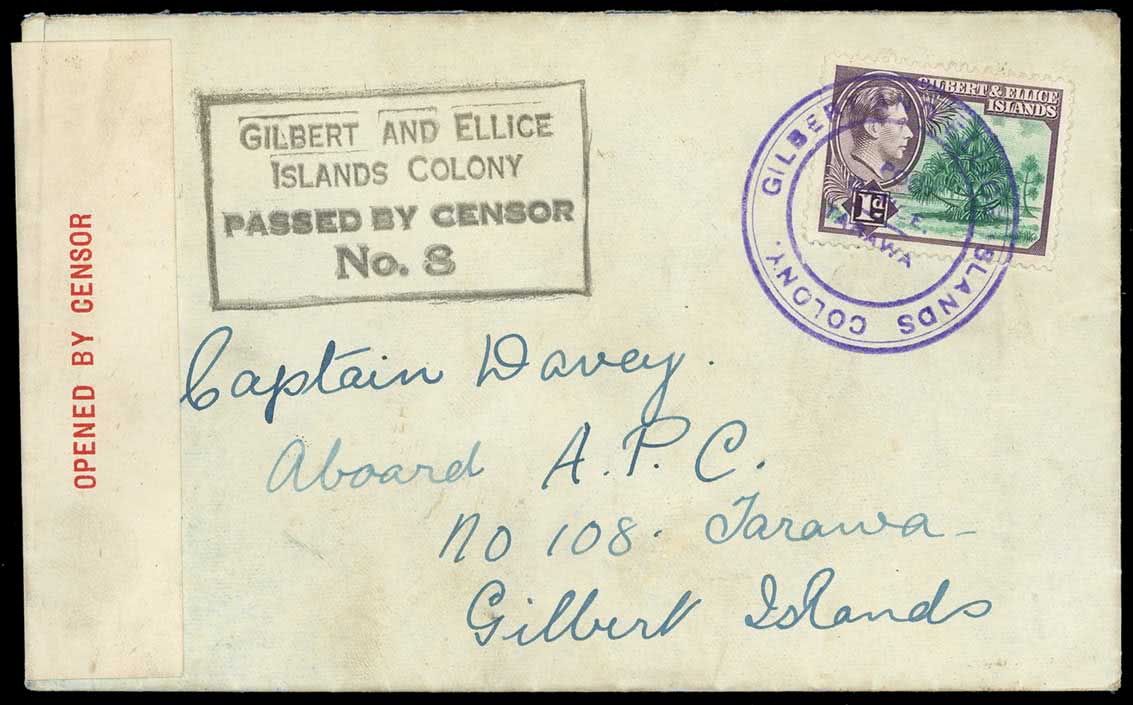 OPENED BY CENSOR
GILBERT AND ELLICE
ISLANDS COLONY
PASSED BY CENSOR
No. 8
GILBERT & ELLICE
ISLANDS
1d
GILBERT ISLANDS COLONY.
TARAWA
Captain Davey.
Aboard A.P.C.
No 108. Tarawa-
Gilbert Islands